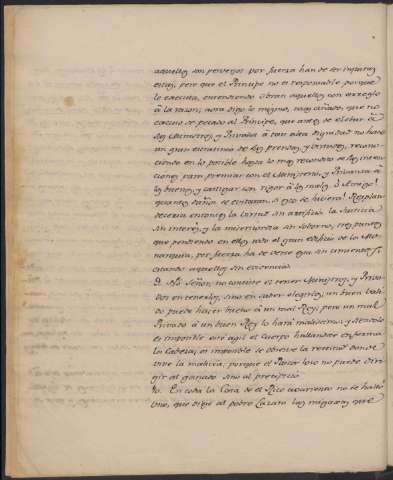 aquellos son perversos por fuerza han de ser injustos
estos, pero que el Principe no es responsable porque
lo executa, entendiendo obran aquellos con arreglo
â la razon; aora digo lo mismo, mas añado, que no
escuso de pecado al Principe, que antes de elevar â
los Ministros, y Privados â tan alta dignidad no hace
un gran escrutinio de las prendas, y virtudes, recono-
ciendo en lo posible hasta lo mas recondito de las inten-
ciones para premiar con el Ministerio, y Privanza â
los buenos, y castigar con rigor â los malos. ô Amigo!
quantos daños se evitaran si esto se hiciera! Resplan-
deceria entonces la virtud sin artificio, la Justicia
sin interes, y la misericordia sin soborno, tres puntos
que pendiendo en ellos todo el gran edificio de la Mo-
narquia, por fuerza ha de verse que sin cimientos
aquellos sin existencia
9. No Señor; no consiste es tener Ministros, y Priva-
dos en tenerlos, sino en saber elegirlos; un buen Vali-
do puede hacer bueno â un mal Rey; pero un mal
Privado â un buen Rey lo hará malissimo; y siendolo
es imposible esté agil el cuerpo hallandose enferma
la Cabeza; es imposible se observe la rectitud donde
vive la malicia, porque el Pastor lobo no puede diri-
gir al ganado sino al precipicio
10. En toda la Casa de el Rico avariento no se halló
uno, que dixe al pobre Lazaro las migajas, que